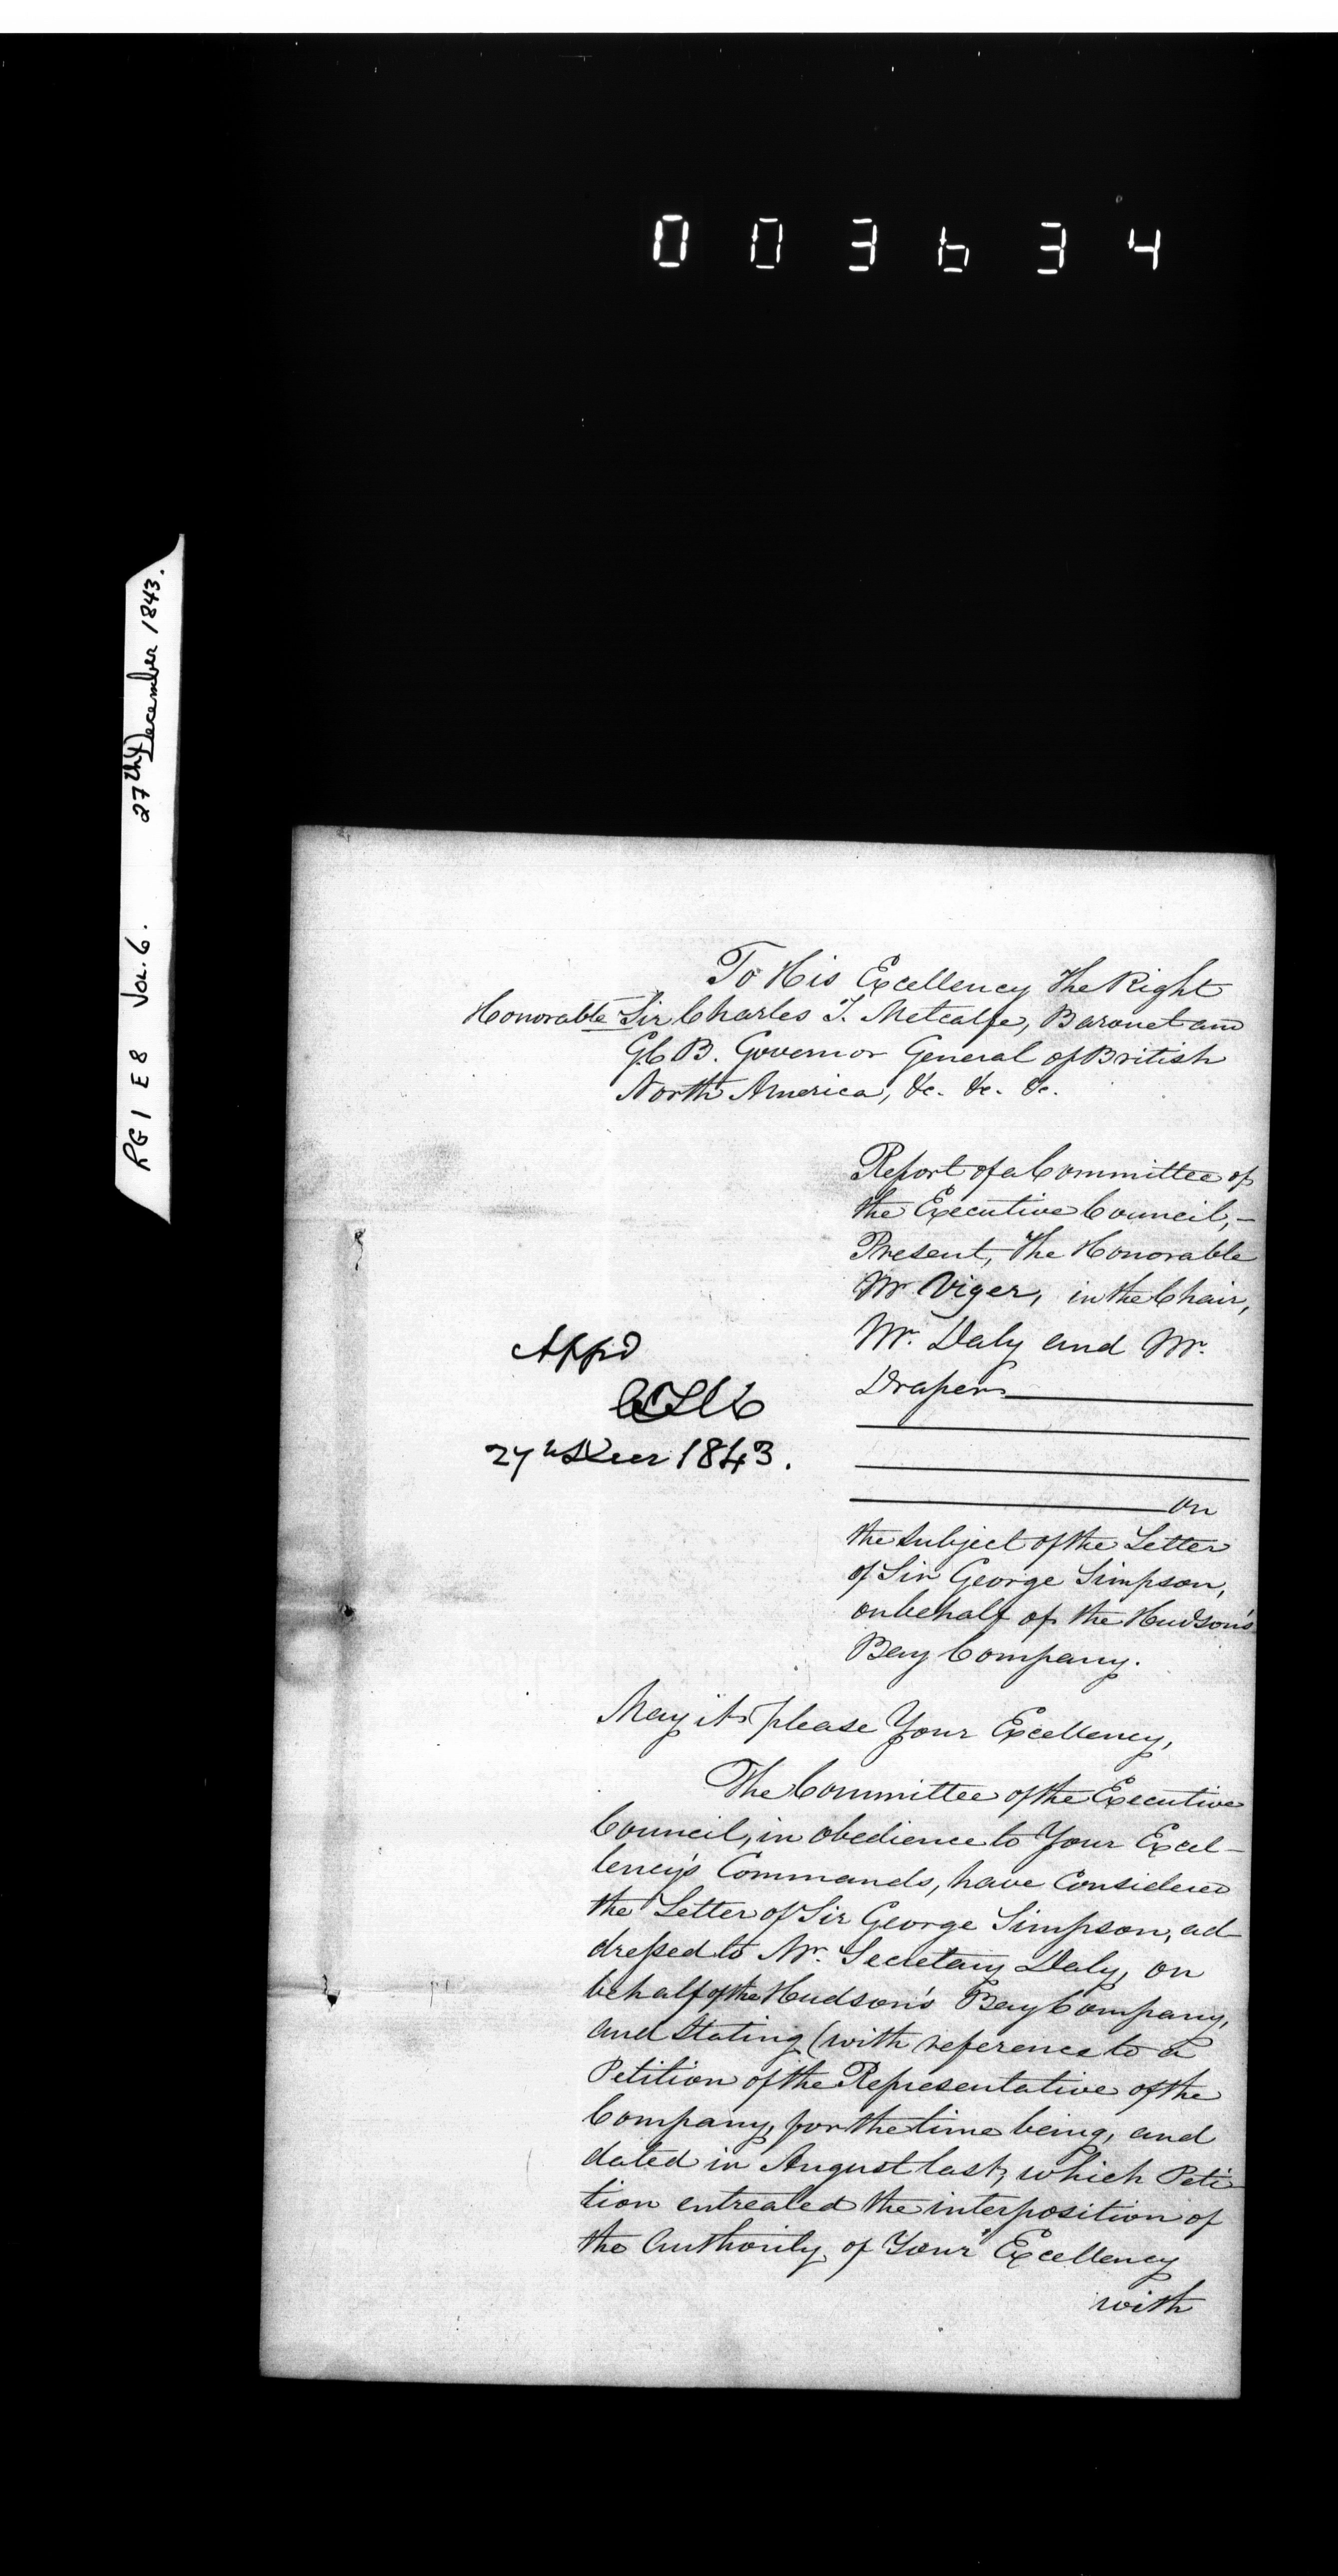 003634
RG 1 E 8 Vol. 6. 27th December 1843.
To His Excellency The Right
Honorable Sir Charles T. Metcalfe, Baronet and
G.C.B. Governor General of British
North America, &c. &c. &c.
Report of a Committee of
the Executive Council, –
Present, The Honorable
Mr. Viger, in the Chair,
Mr. Daly and Mr.
Draper
on
the subject of the Letter
of Sir George Simpson,
on behalf of the Hudson's
Bay Company.
Appd
27th Decr 1843.
May it please Your Excellency,
The Committee of the Executive
Council, in obedience to Your Excel-
lency's Commands, have Considered
the Letter of Sir George Simpson, ad-
dressed to Mr. Secretary Daly, on
behalf of the Hudson's Bay Company,
and Stating (with reference to a
Petition of the Representative of the
Company, for the time being, and
dated in August last, which Peti-
tion entreated the interposition of
the Authority of Your Excellency
with